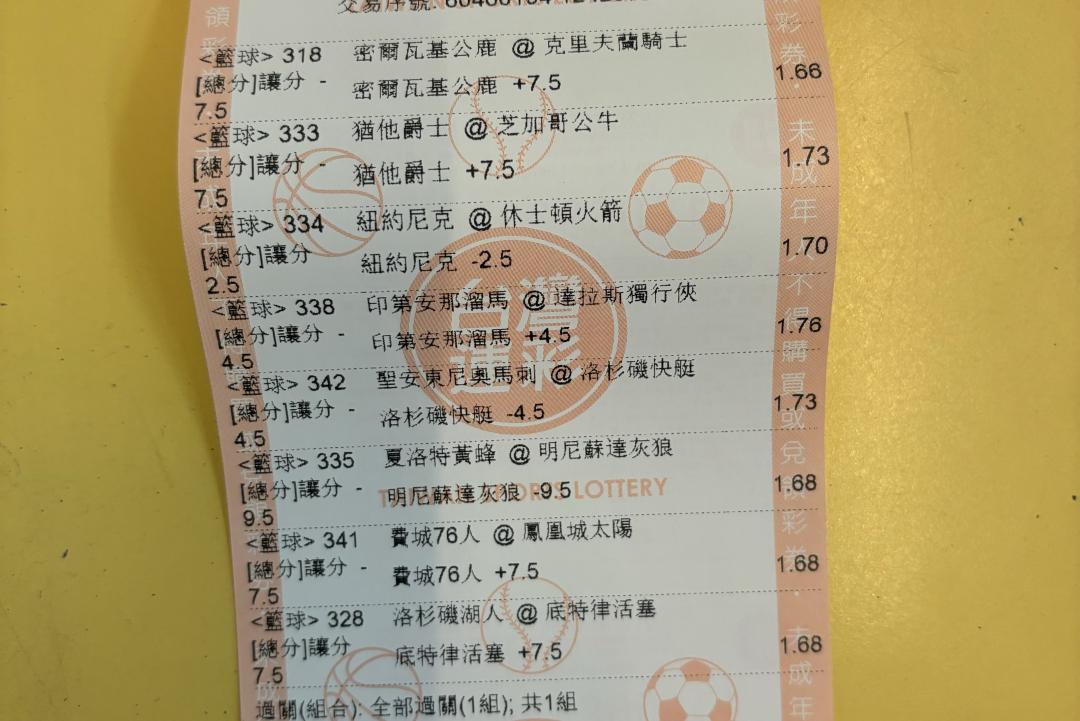 <籃球> 318 密爾瓦基公鹿 @ 克里夫蘭騎士
[總分]讓分 - 密爾瓦基公鹿 +7.5 1.66
7.5
<籃球> 333 猶他爵士 @ 芝加哥公牛
[總分]讓分 - 猶他爵士 +7.5 1.73
7.5
<籃球> 334 紐約尼克 @ 休士頓火箭
[總分]讓分 紐約尼克 -2.5 1.70
2.5
<籃球> 338 印第安那溜馬 @ 達拉斯獨行俠
[總分]讓分 - 印第安那溜馬 +4.5 1.76
4.5
<籃球> 342 聖安東尼奧馬刺 @ 洛杉磯快艇
[總分]讓分 - 洛杉磯快艇 -4.5 1.73
4.5
<籃球> 335 夏洛特黃蜂 @ 明尼蘇達灰狼
[總分]讓分 - 明尼蘇達灰狼 -9.5 1.68
9.5
<籃球> 341 費城76人 @ 鳳凰城太陽
[總分]讓分 - 費城76人 +7.5 1.68
7.5
<籃球> 328 洛杉磯湖人 @ 底特律活塞
[總分]讓分 底特律活塞 +7.5 1.68
7.5
過關(組合): 全部過關(1組); 共1組
台灣
運彩
SPORTS LOTTERY
領彩券
彩券・未成年人不得購買或兌領彩券・未成年